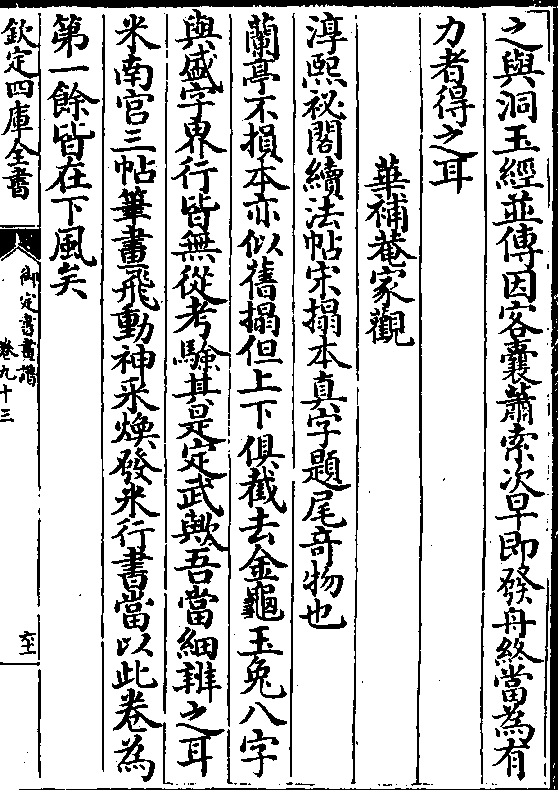 之與洞玉經並傳因客囊蕭索次早即發舟終當為有
力者得之耳
華補菴家觀
淳熙祕閣續法帖宋搨本真字題尾竒物也
蘭亭不損本亦似舊搨但上下俱截去金龜玉兔八字
與盛字界行皆無從考驗其是定武歟吾當細辨之耳
米南宫三帖筆畫飛動神采煥發米行書當以此卷為
第一餘皆在下風矣
欽定四庫全書
御定書畫譜
卷九十三